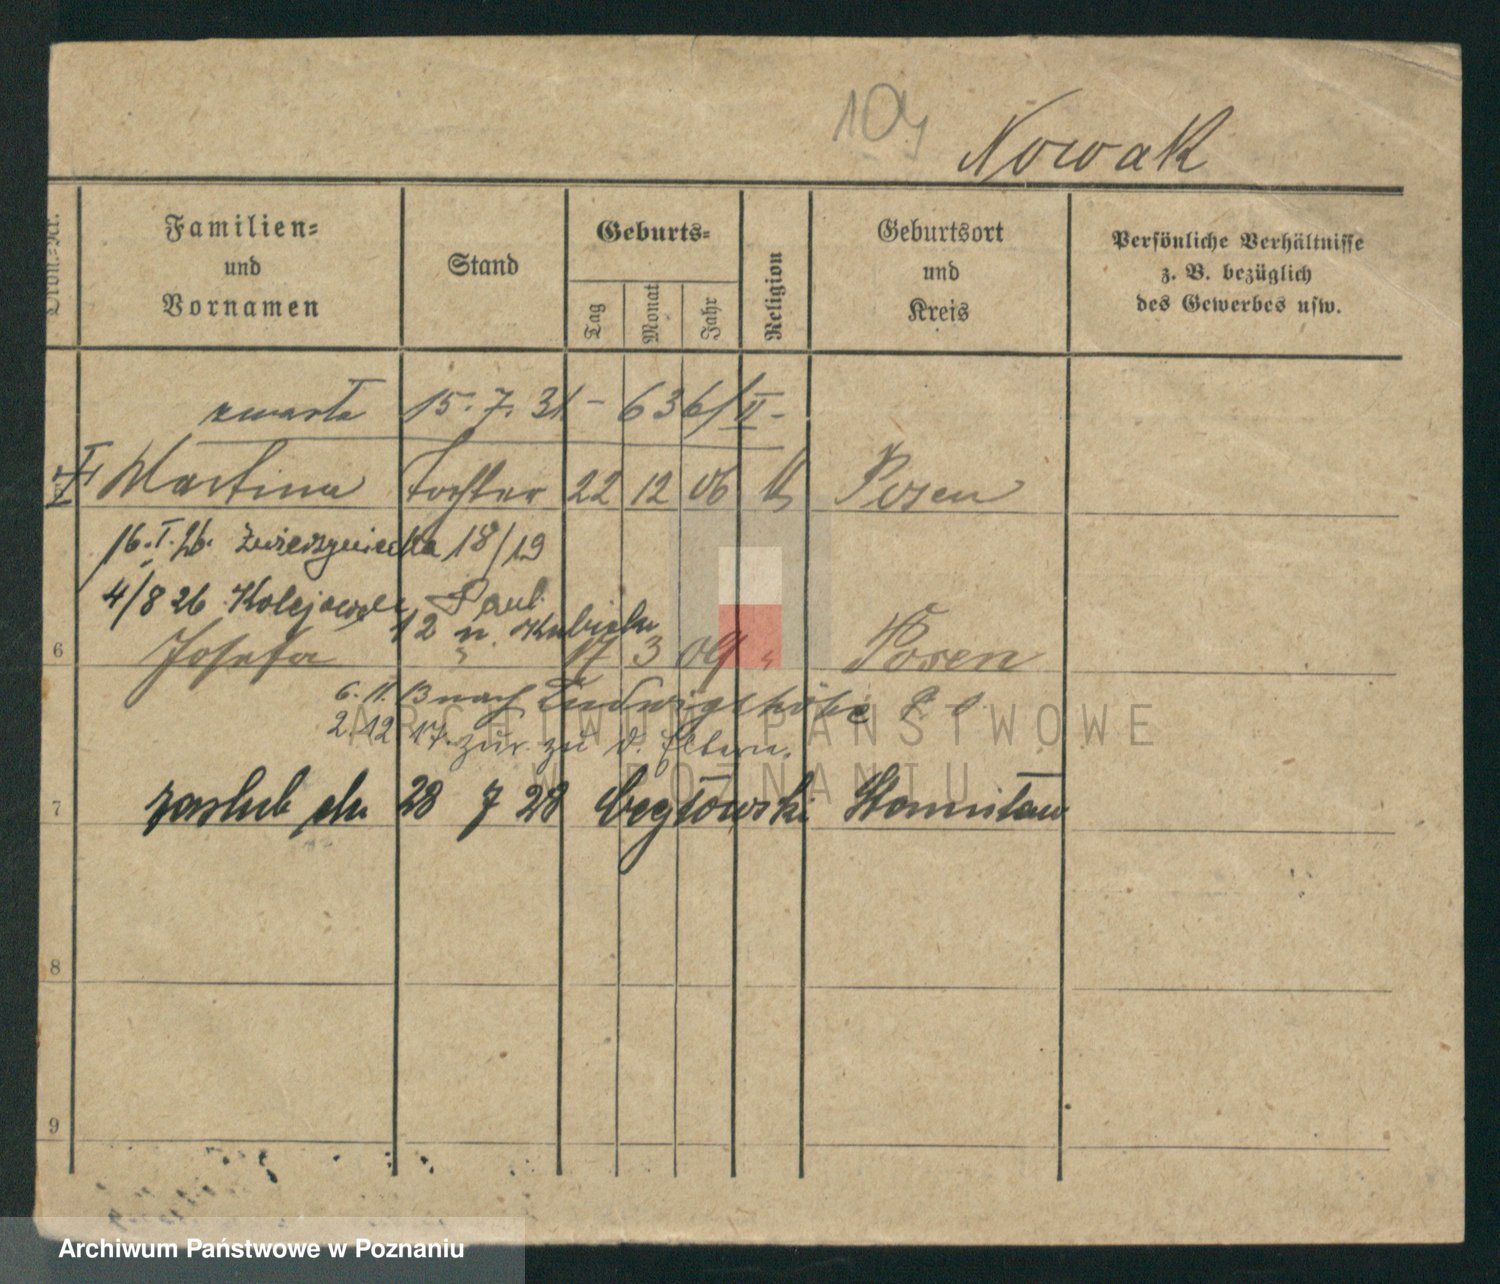 Nowak
Ordn.-Nr.
Familien-
und
Vornamen
Stand
Geburts-
Tag
Monat
Jahr
Religion
Geburtsort
und
Kreis
Persönliche Verhältnisse
z. B. bezüglich
des Gewerbes usw.
zmarła 15. 7. 31 - 636/II -
Martina Tochter 22 12 06 Posen
16. I. 26. Zwierzyniecka 18/19
4/8 26 Kolejowa Paul
12 n. Kubicka
6 Josefa " 17 3 09 " Posen
6. 11. 13 nach Ludwigshöhe
2. 12 17. zur. zu d. Eltern.
7 zaślub dn 28 7 28
8
9
ARCHIWUM PAŃSTWOWE
W POZNANIU
Archiwum Państwowe w Poznaniu